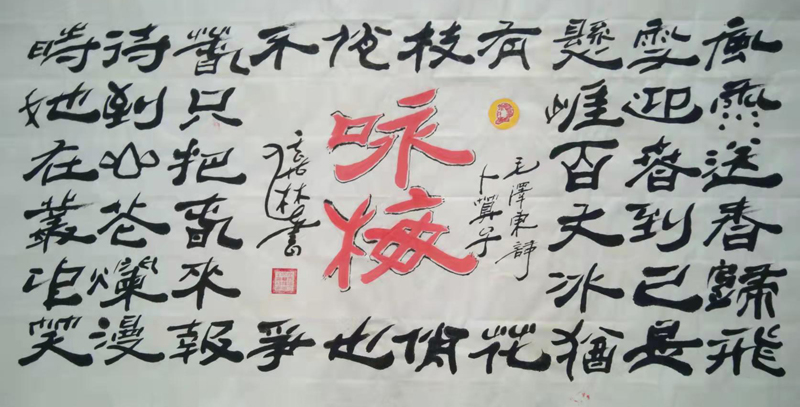 風雨送春歸飛
雪迎春到已是
懸崖百丈冰猶
有花
枝俏
俏也
不爭
春只把春來報
待到山花爛漫
時她在叢中笑
毛澤東詩
卜算子
咏梅
林書